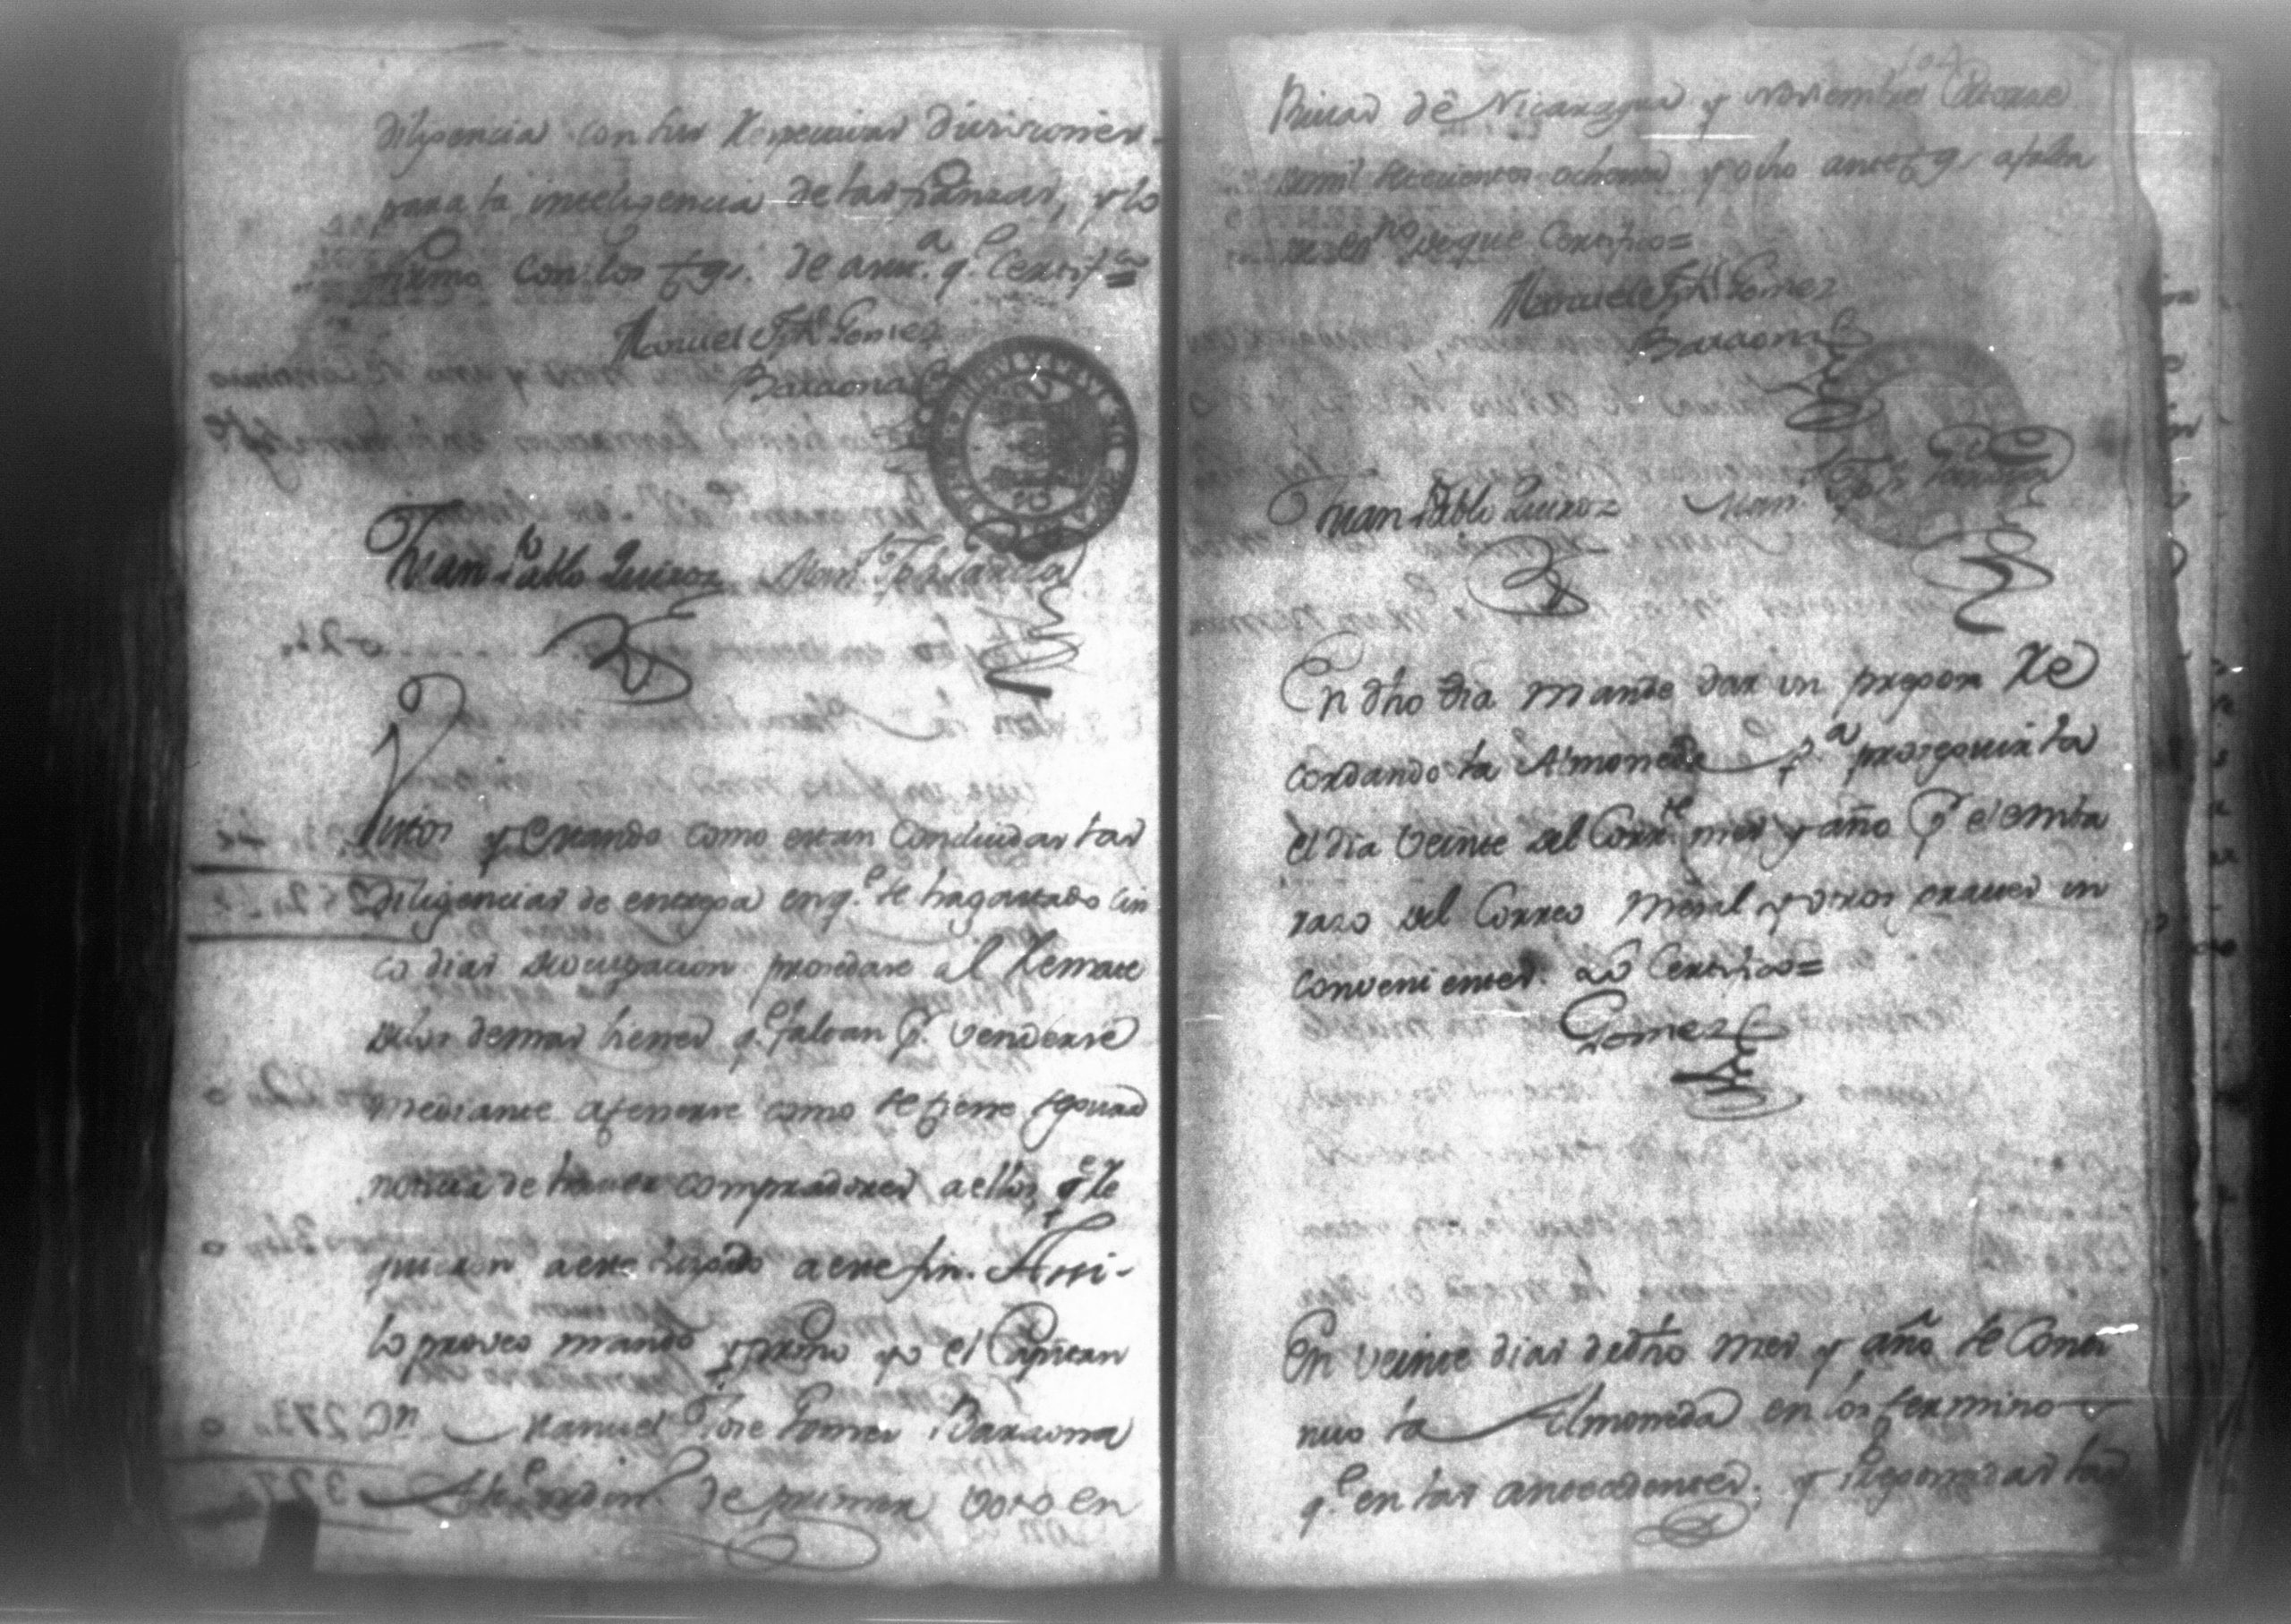 diligencia con sus respectivas divisiones.
para la inteligencia de las fianzas, y lo
firmo con los tgs. de assa. qe. Certifco=
Manuel Jph Gomez
Baraona
Juan Pablo Quiroz Man.l Jph
Vistos y estando como estan concluidas las
diligencias de entrega en q.e se hagastado cin
co dias deocupacion procedase al Remate
delos demas bienes q.e faltan p.r venderse
mediante atenerse como se tiene segura
noticia de haver compradores aellos, q.e se
aeste aeste fin. Assi-
lo proveo mando y firmo yo el Capitan
Dn Manuel Jose Gomez Baraona
Alc.e ordin.o de primer voto en
104
de Nicaragua y Noviembre Catorze
demil setecientos ochenta y ocho antetgs. afalta
de esno deque Certifico=
Manuel Jph Gomez
Baraona
Juan Pablo Quiroz Man.l Jph
En dho dia mande dar un pregon Re
cordando la Almoneda p.a proseguirla
el dia veinte del Corr.te mes y año p.r el emba
razo del Correo Mensal y otros graves in
convenientes. Lo Certifico=
Gomez
En veinte dias dedho mes y año se Conti
nuo la Almoneda en los terminos
q.e en las antecedentes. y las